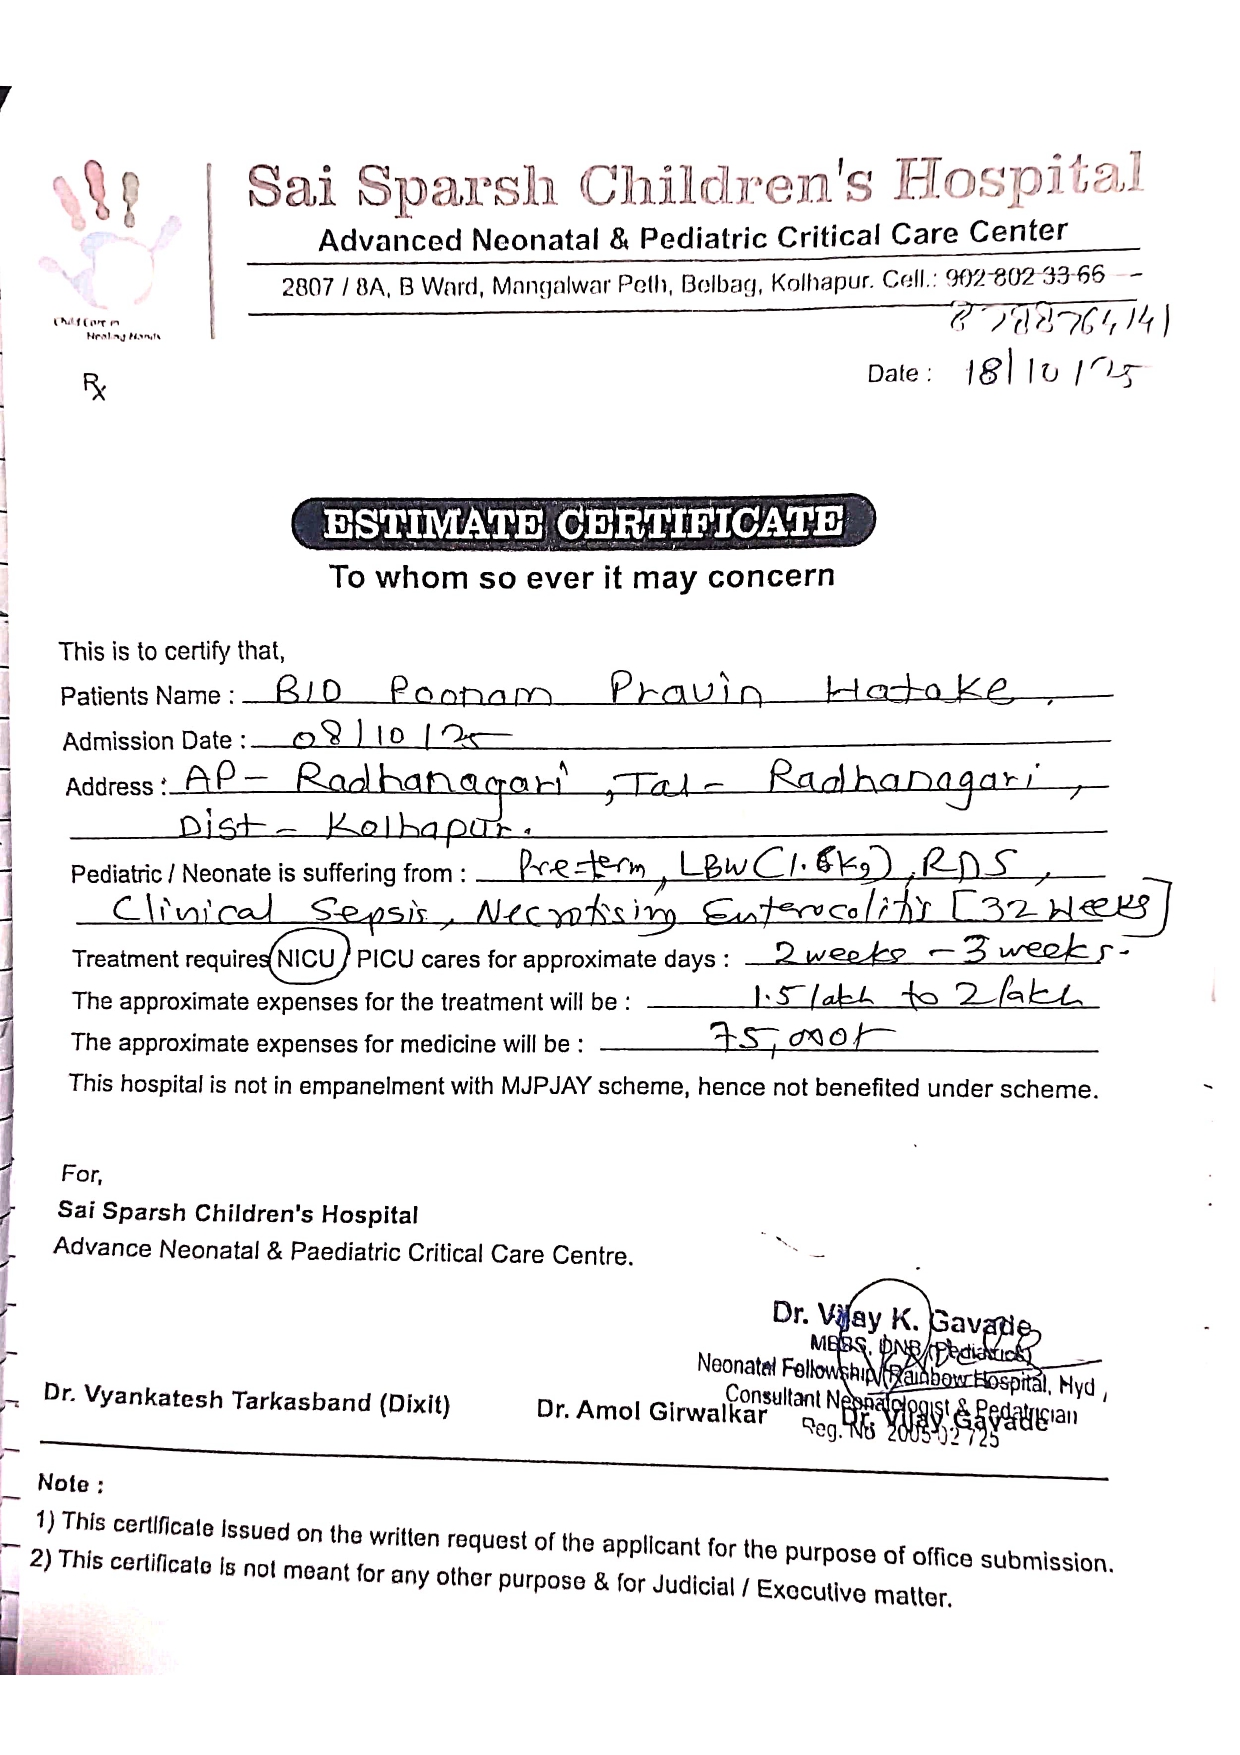 Sai Sparsh Children's Hospital
Advanced Neonatal & Pediatric Critical Care Center
2807 / 8A, B Ward, Mangalwar Peth, Belbag, Kolhapur. Cell.: 902 802 33 66
8788764141
Child Care in
Healing Hands
Rx
Date : 18/10/25
ESTIMATE CERTIFICATE
To whom so ever it may concern
This is to certify that,
Patients Name : B/O Poonam Pravin Hatake,
Admission Date : 08/10/25
Address : AP- Radhanagari, Tal- Radhanagari,
Dist- Kolhapur.
Pediatric / Neonate is suffering from : Pre-term, LBW (1. kg), RDS,
Clinical Sepsis, Necrotising Enterocolitis [32 weeks]
Treatment requires NICU / PICU cares for approximate days : 2 weeks - 3 weeks.
The approximate expenses for the treatment will be : 1.5 lakh to 2 lakh
The approximate expenses for medicine will be : 75,000/-
This hospital is not in empanelment with MJPJAY scheme, hence not benefited under scheme.
For,
Sai Sparsh Children's Hospital
Advance Neonatal & Paediatric Critical Care Centre.
Dr. Vijay K. Gavade
MBBS, DNB (Pediatrics)
Neonatal Fellowship Rainbow Hospital, Hyd,
Consultant Neonatologist & Pedatrician
Reg. No 2005 02 725
Dr. Vyankatesh Tarkasband (Dixit) Dr. Amol Girwalkar Dr. Vijay Gavade
Note :
1) This certificate issued on the written request of the applicant for the purpose of office submission.
2) This certificate is not meant for any other purpose & for Judicial / Executive matter.